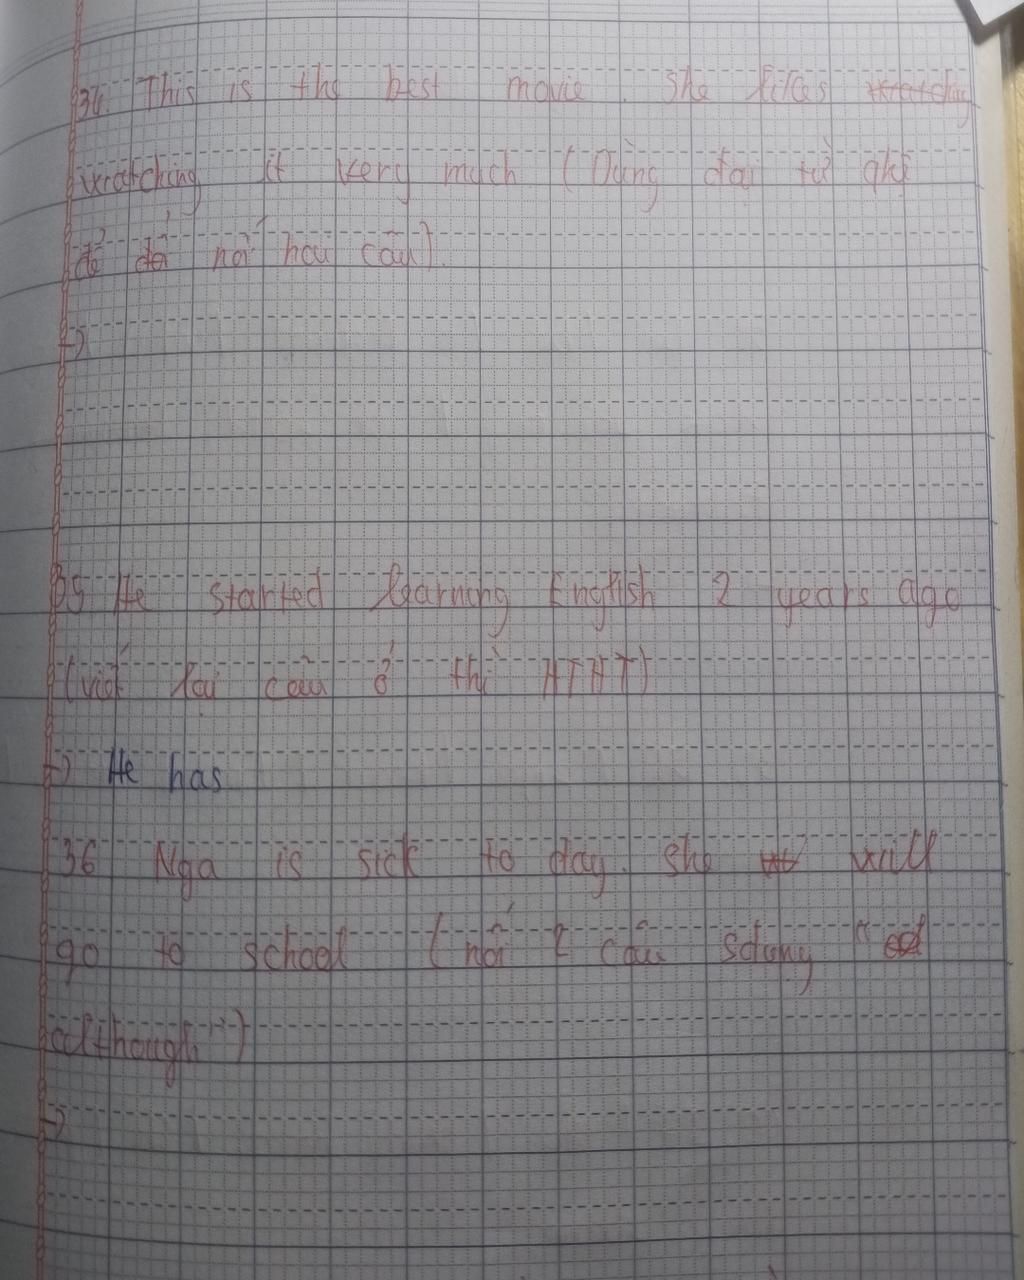 34 This is the best movie. She likes watching
watching it very much (Dùng đại từ qhệ
để để nối hai câu).
→
35 He started learning English 2 years ago
(viết lại câu ở thì HTHT)
→ He has
36 Nga is sick to day. she will
go to school (nối 2 câu sdụng "
although")
→